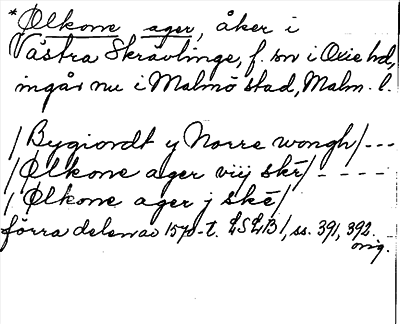 *Ølkone ager, åker i
Västra Skrävlinge, f. sn i Oxie hd,
ingår nu i Malmö stad, Malm. l.
/Bygiordt y Norre wongh/---
/Ølkone ager viij skē/----
/Ølkone ager j skē/
förra delen av 1570-t. LSLB1, ss. 391, 392.
orig.